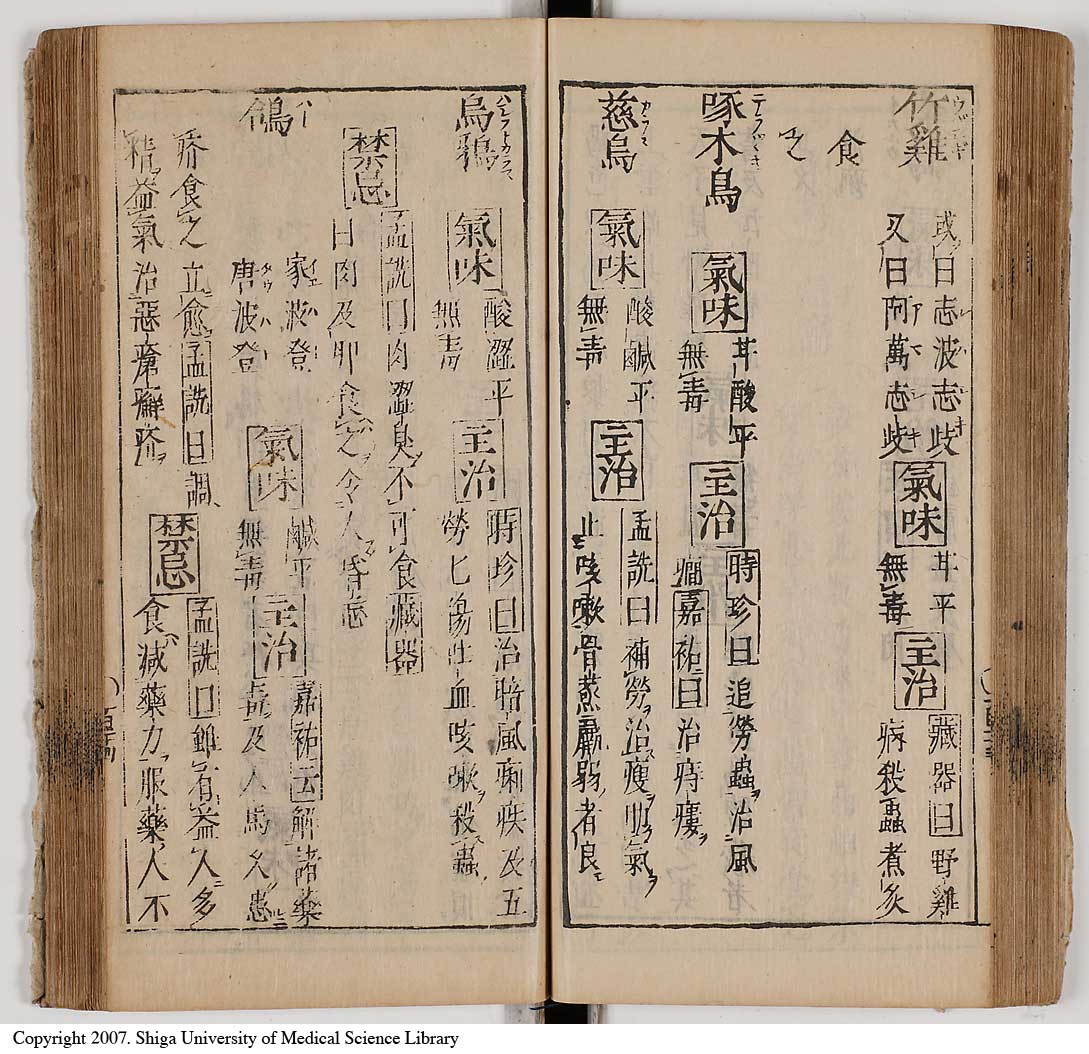 竹雞
或曰志波志歧
又曰阿萬志歧
氣味
甘平
無毒
主治
藏器曰野雞
病殺蟲煮炙
食
之
啄木鳥
氣味
甘酸平
無毒
主治
時珍曰追勞蟲治風
癎嘉祐曰治痔瘻
慈烏
氣味
酸鹹平
無毒
主治
孟詵曰補勞治瘦助氣
止咳嗽骨蒸羸弱者良
烏鴉
氣味
酸澀平
無毒
主治
時珍曰治暗風癇疾及五
勞七傷吐血咳嗽殺蟲
禁忌
孟詵曰肉澀臭不可食藏器
曰肉及卵食之令人昏忘
鴿
家波登
唐波登
氣味
鹹平
無毒
主治
嘉祐云解諸藥
毒及人馬久患
疥食之立愈孟詵曰調
精益氣治惡瘡癬疥
禁忌
孟詵曰雖有益人多
食減藥力服藥人不
Copyright 2007. Shiga University of Medical Science Library